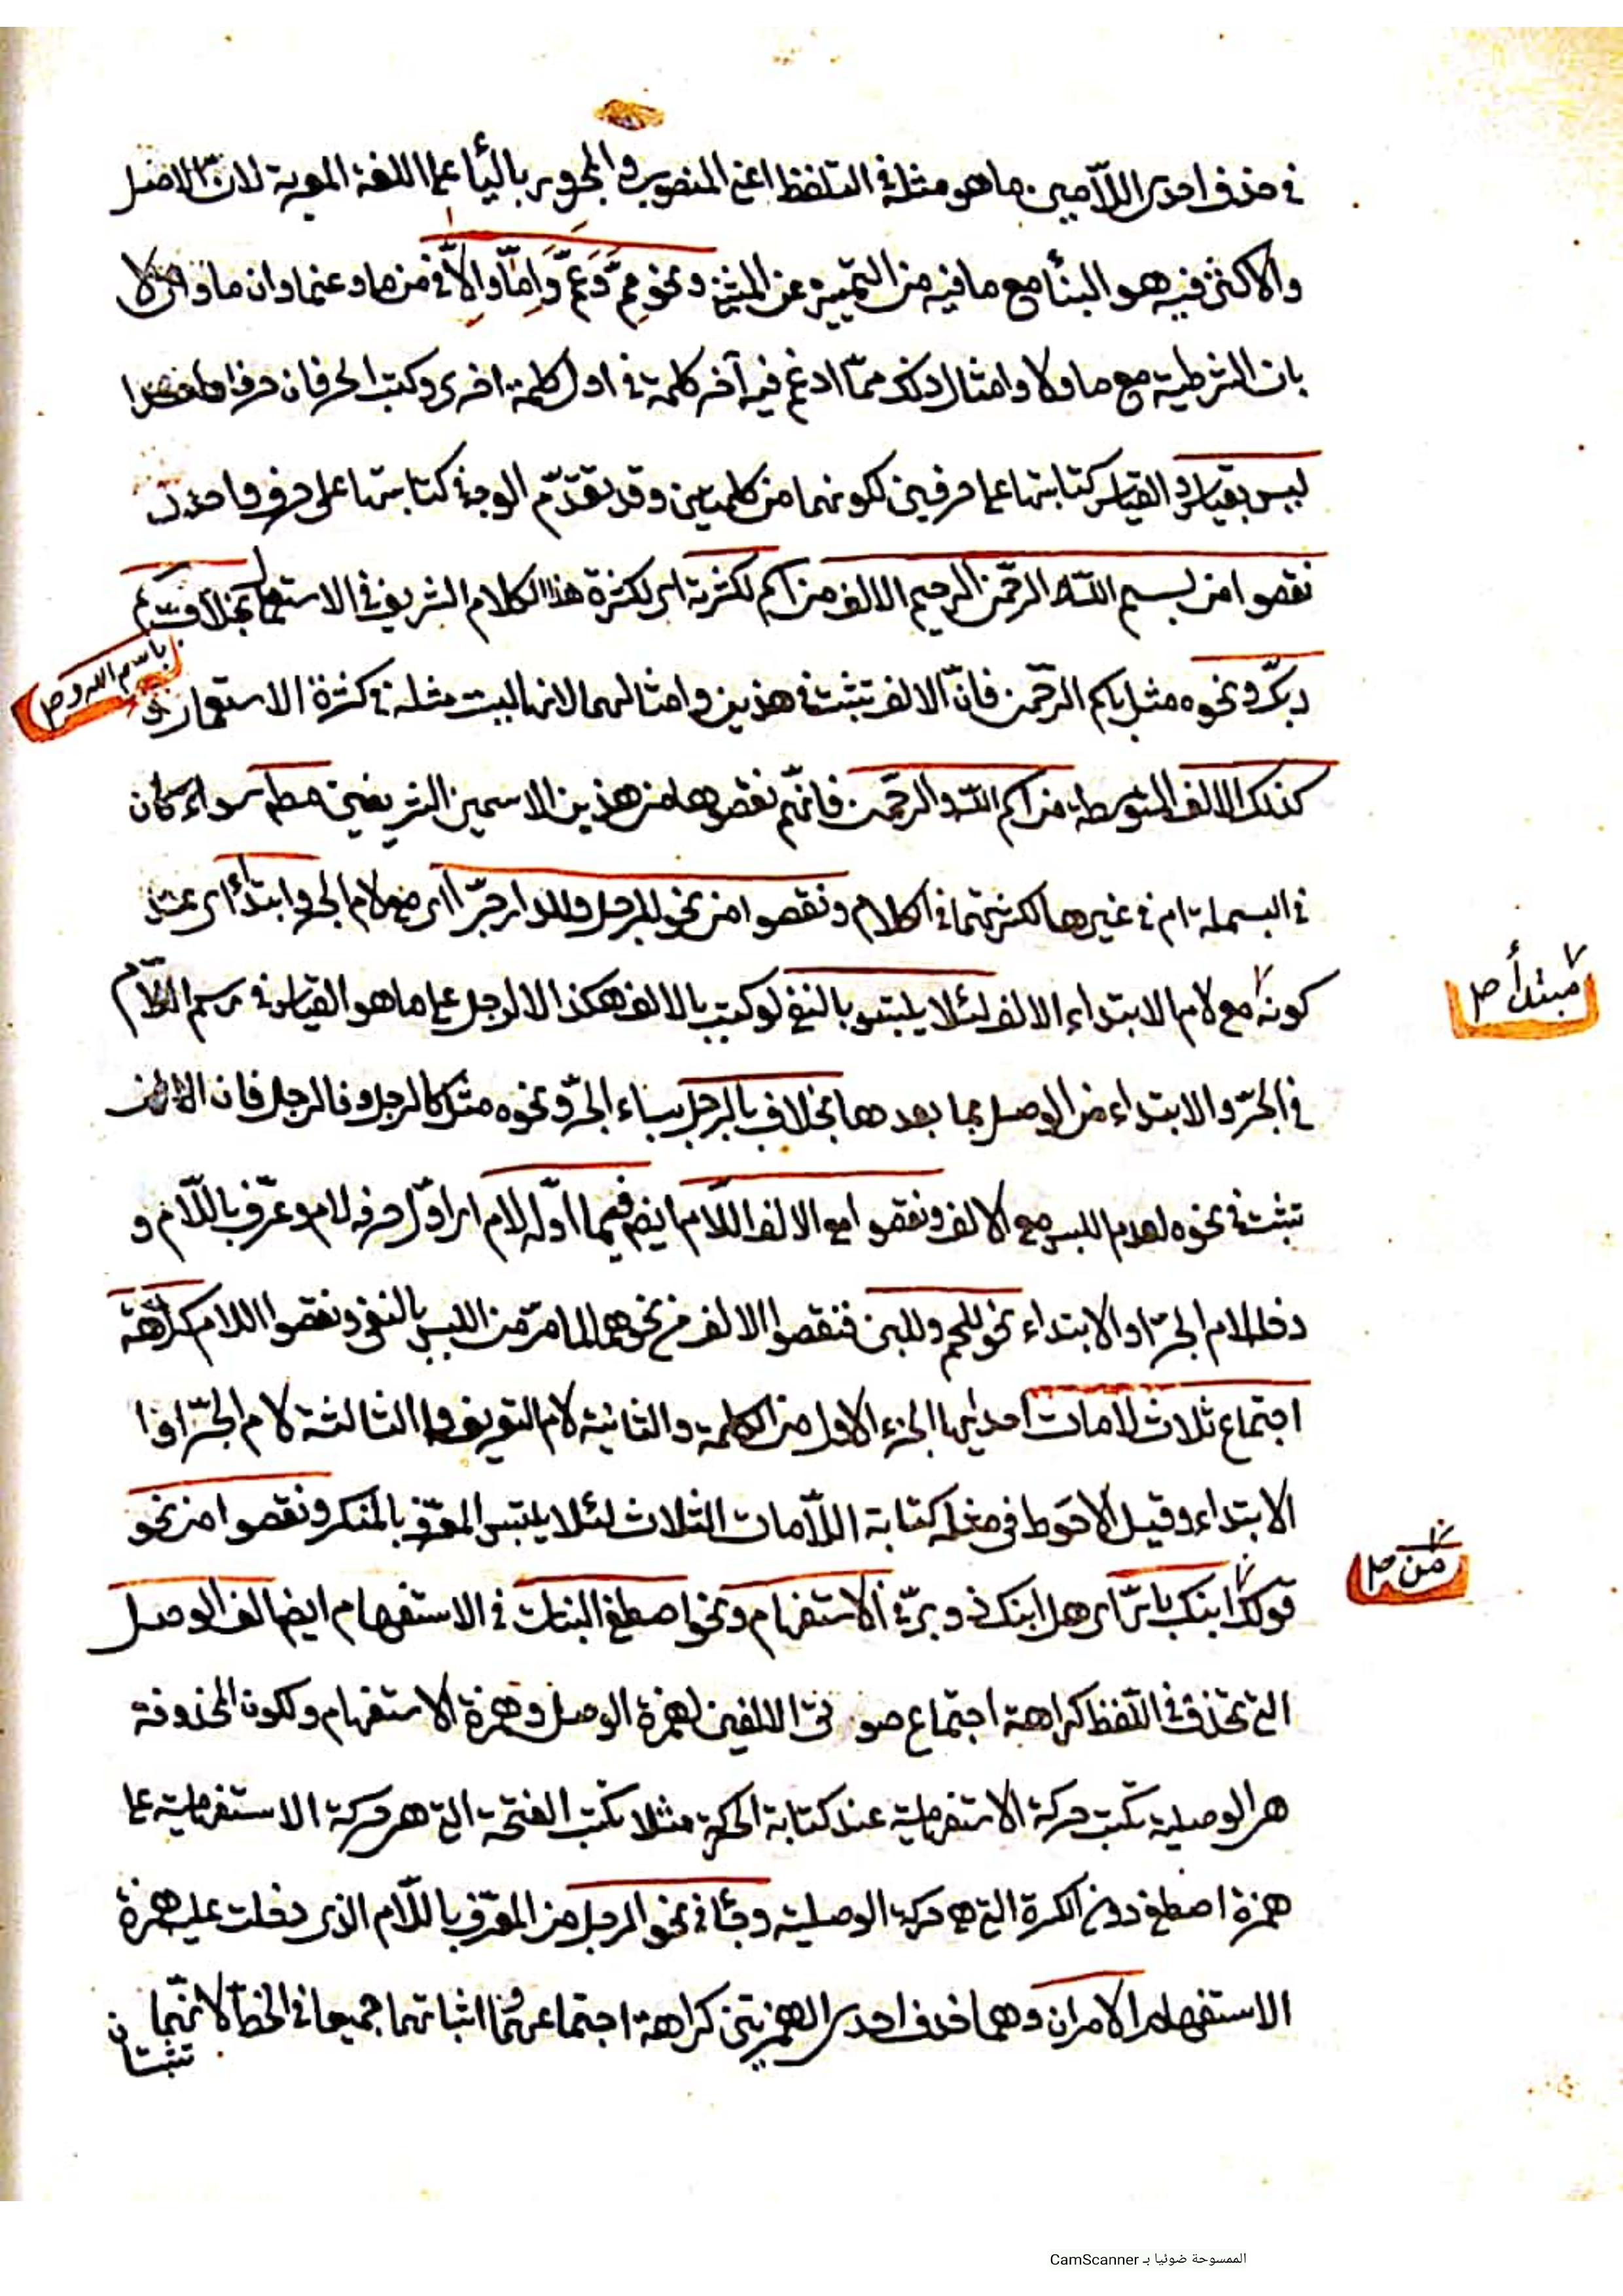 في حذف احدى اللّامين ما هو مثله في التلفظ اعني المنصوب والمجرور بالياء على اللغة المعربة لان الاصل
والاكثر فيه هو البناء مع ما فيه من التمييز عن المثنى ونحو مِمّ وَعَمّ وَاِمّا واِلّا في من ما وعن ما وان ما وان لا
بان الشرطية مع ما ولا وامثال ذلك ممّا ادغم فيه آخر كلمة في اول كلمة اخرى وكتب الحرفان حرفا واحدا
ليس بقياس والقياس كتابتها على حرفين لكونهما من كلمتين وقد تقدّم الوجه في كتابتها على حرف واحد
نقصوا من بسم اللّه الرحمن الرحيم الالف من اسم لكثرته اى لكثرة هذا الكلام الشريف في الاستعمال بخلاف باسم
باسم الله و صح
ربّك ونحوه مثل باسم الرحمن فانّ الالف تثبت في هذين وامثالهما لانها ليست مثله في كثرة الاستعمال و
كذلك الالف المتوسطة من اسم اللّه والرحمن فانهم نقصوها من هذين الاسمين الشريفين مطلقا سواء كان
في البسملة ام في غيرها لكثرتهما في الكلام ونقصوا من نحو للرجل وللدار جرّا اى مع لام الجر وابتداء اى عند
كونه مع لام الابتداء الالف لئلا يلتبس بالنفي لو كتب بالالف هكذا لالرجل على ما هو القياس في رسم اللام
مبتدأ صح
في الجرّ والابتداء من الوصل بما بعدها بخلاف بالرجل بباء الجرّ ونحوه مثل كالرجل وفالرجل فان الالف
تثبت في نحوه لعدم اللبس مع الالف ونقصوا مع الالف اللام ايضا فيما اوّله لام اى اوّل حرفه لام وعرّف باللّام و
دخله لام الجرّ او الابتداء نحو للحم وللبن فنقصوا الالف من نحوهما لما مرّ من اللبس بالنفي ونقصوا اللام كراهة
اجتماع ثلاث لامات احديها الجزء الاول من الكلمة والثانية لام التعريف والثالثة لام الجرّ او
الابتداء وقيل الاحوط في مثله كتابة اللّامات الثلاث لئلا يلتبس المعرّف بالمنكر ونقصوا من نحو
قولك ابنك بارّ اى هل ابنك ذو برّ في الاستفهام ونحو اصطفى البنات في الاستفهام ايضا الف الوصل
من صح
التي تحذف في التلفظ كراهة اجتماع صورتي الالفين لهمزة الوصل وهمزة الاستفهام ولكون المحذوفة
هى الوصلية تكتب حركة الاستفهامية عند كتابة الحركة مثلا تكتب الفتحة التي هى حركة الاستفهامية على
همزة اصطفى دون الكسرة التي هى حركة الوصلية وجاء في نحو الرجل من المعرّف باللّام الذى دخلت عليه همزة
الاستفهام الامران وهما حذف احدى الهمزتين كراهة اجتماعهما واثباتهما جميعا في الخط لانهما
تثبتان
الممسوحة ضوئيا بـ CamScanner